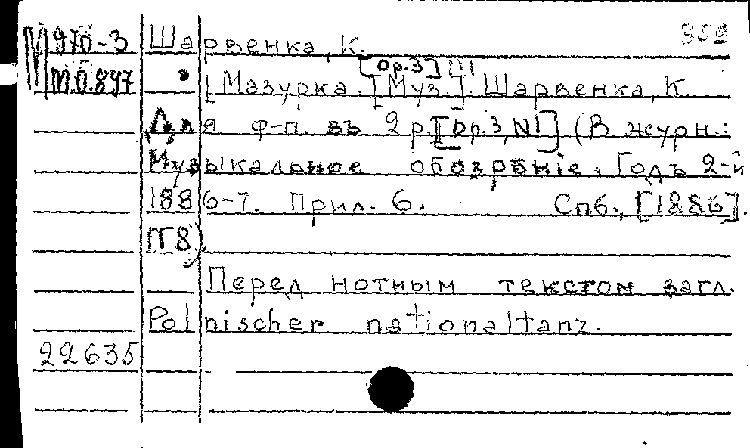 М 970-3 Шарвенка, К. 359
[Op.3]
Мб.897 [Мазурка. [Муз.]. Шарвенка, К.
Для ф-п. въ 2 р. [Op.3, N1] (В журн.:
Музыкальное обозрѣніе. Годъ 2-й
1886-7. Прил. 6. Спб., [1886].
N 8).
Перед нотным текстом загл.
Polnischer nationaltanz.
22635